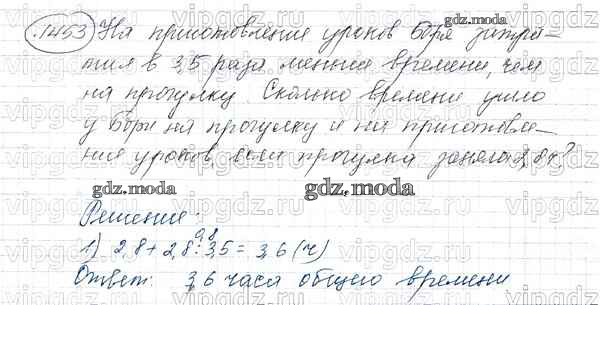 1453 На приготовление уроков Боря затра-
тил в 3,5 раза меньше времени, чем
на прогулку. Сколько времени ушло
у Бори на прогулку и на приготовле-
ние уроков, если прогулка заняла 2,8 ч?
Решение:
0,8
1) 2,8 + 2,8 : 3,5 = 3,6 (ч)
Ответ: 3,6 часа общего времени
gdz.moda
gdz.moda
gdz.moda
vipgdz.ru